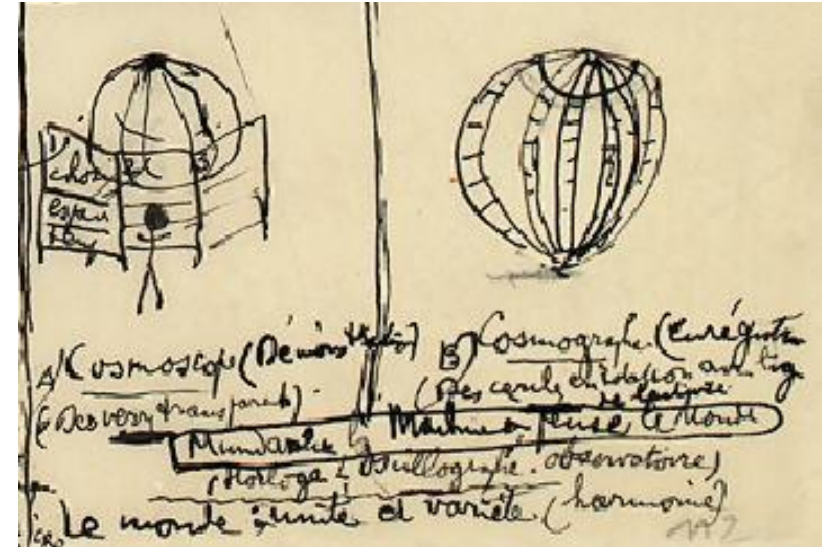 1
chos 2 3
espace
temps
A) Kosmoscope (Démonstration)
(Des verres transparents)
B) Cosmographe (Enrégistre
(Des cercles en relation avec tige
de lecture
Mundaneum Machine à penser le Monde
(Horloge : oscillographe. observatoire)
Le monde : unité et variété (harmonie)
112